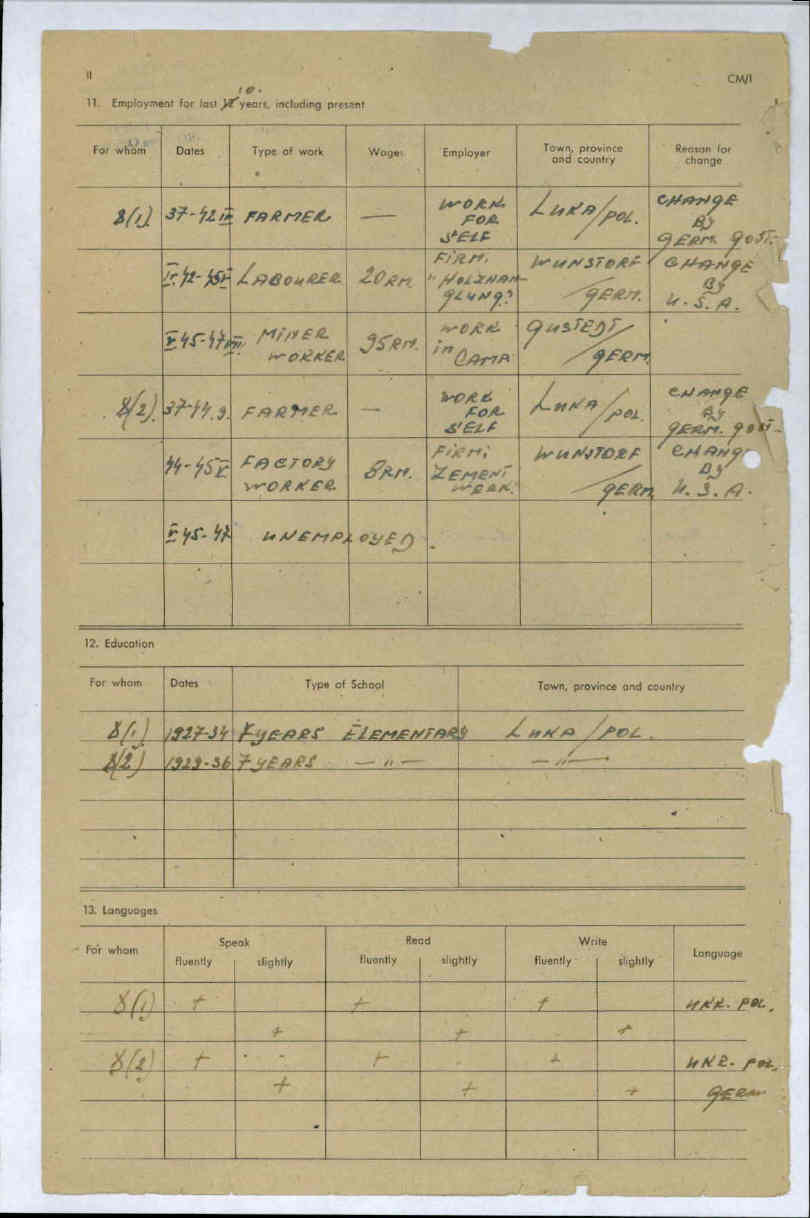 II
CM/1
10.
11. Employment for last 12 years, including present
For whom Dates Type of work Wages Employer Town, province and country Reason for change
8(1) 37-42 III FARMER — WORK FOR SELF LUKA/POL. CHANGE BY GERM. GOST.
IV.42-45 V LABOURER 20 RM. FIRM: "HOLZHANGLUNG" WUNSTORF /GERM. CHANGE BY U.S.A.
V 45-47 VII. MINER WORKER 95 RM. WORK in CAMP GUSTEDT/ /GERM.
8(2). 37-44.9. FARMER — WORK FOR SELF LUKA/POL. CHANGE BY GERM. GOST-
44-45 V FACTORY WORKER 8 RM. FIRM: ZEMENT WERK. WUNSTORF /GERM. CHANGE BY U.S.A.
V 45-47 UNEMPLOYED.
12. Education
For whom Dates Type of School Town, province and country
8(1) 1927-34 7 YEARS ELEMENTARY LUKA/POL.
8(2) 1929-36 7 YEARS — " — — " —
13. Languages
For whom Speak Read Write Language
fluently slightly fluently slightly fluently slightly
8(1) + + + UKR. POL.
+ + +
8(2) + + + UKR. POL.
+ + + GERM